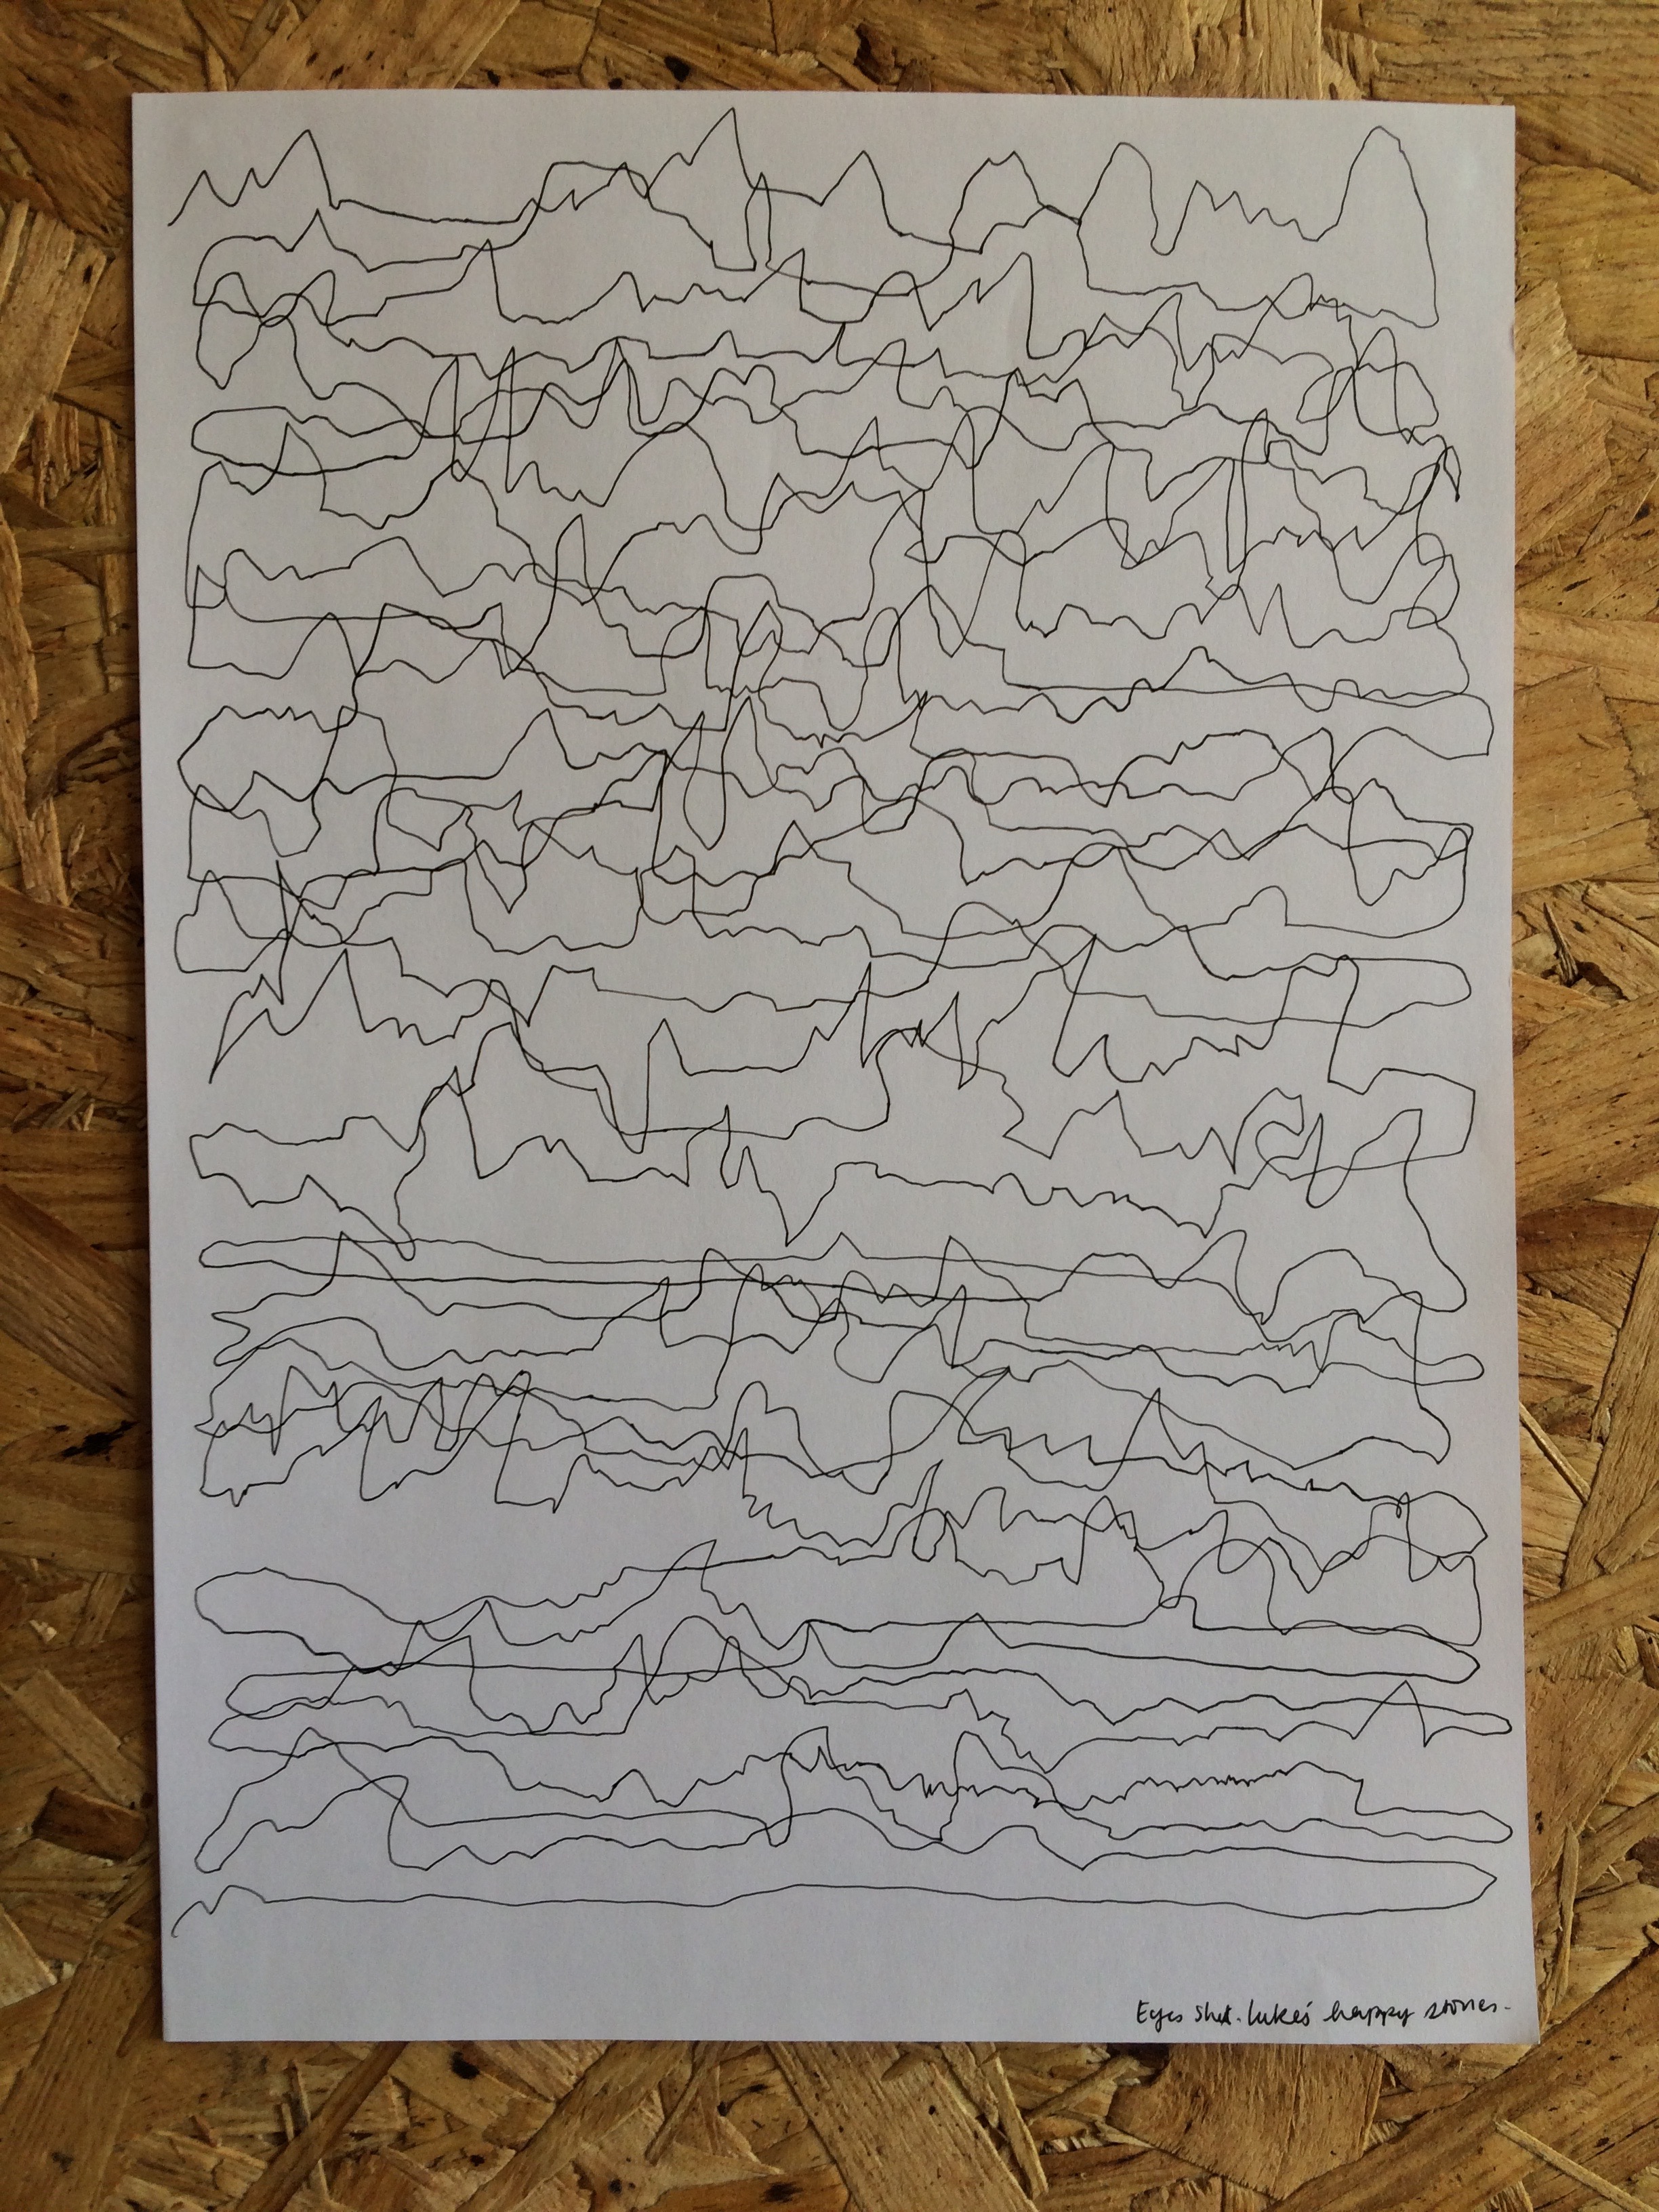 Eyes shut. luke's happy stories.